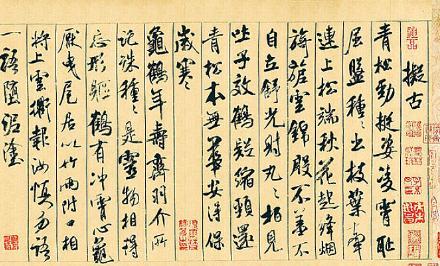 擬古
青松勁挺姿凌霄恥
屈盤種種出枝葉牽
連上松端秋花起絳烟
旖旎雲錦殷不羞不
自立舒光射丸丸柏見
吐子效鶴疑縮頸還
青松本無華安得保
歲寒
龜鶴年壽齊羽介所
託殊種種是靈物相得
忘形軀鶴有冲霄心龜
厭曳尾居以竹兩附口相
將上雲衢報汝慎勿語
一語墮泥塗